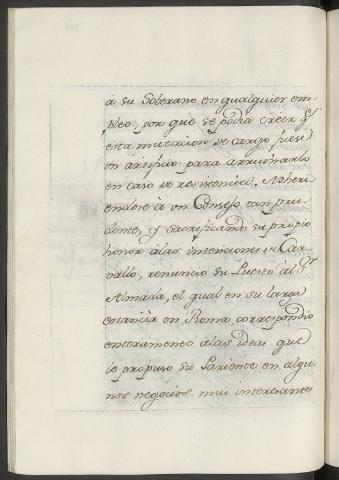 à su Soberano en qualquier em-
pleo, por que se podia créer q.e
esta mutacion de cargo fuese
un artificio para arruinarlo
en caso de resistencia. Adheri-
endose à un Consejo tan pru-
dente, y sacrificando su propio
honor à las intenciones de Car-
vallo, renunció su Puesto àl S.r
Almada, el qual en su larga
estancia en Roma, correspondió
enteramente à las ideas que
le propuso su Pariente en algu-
nos negocios mui interesantes